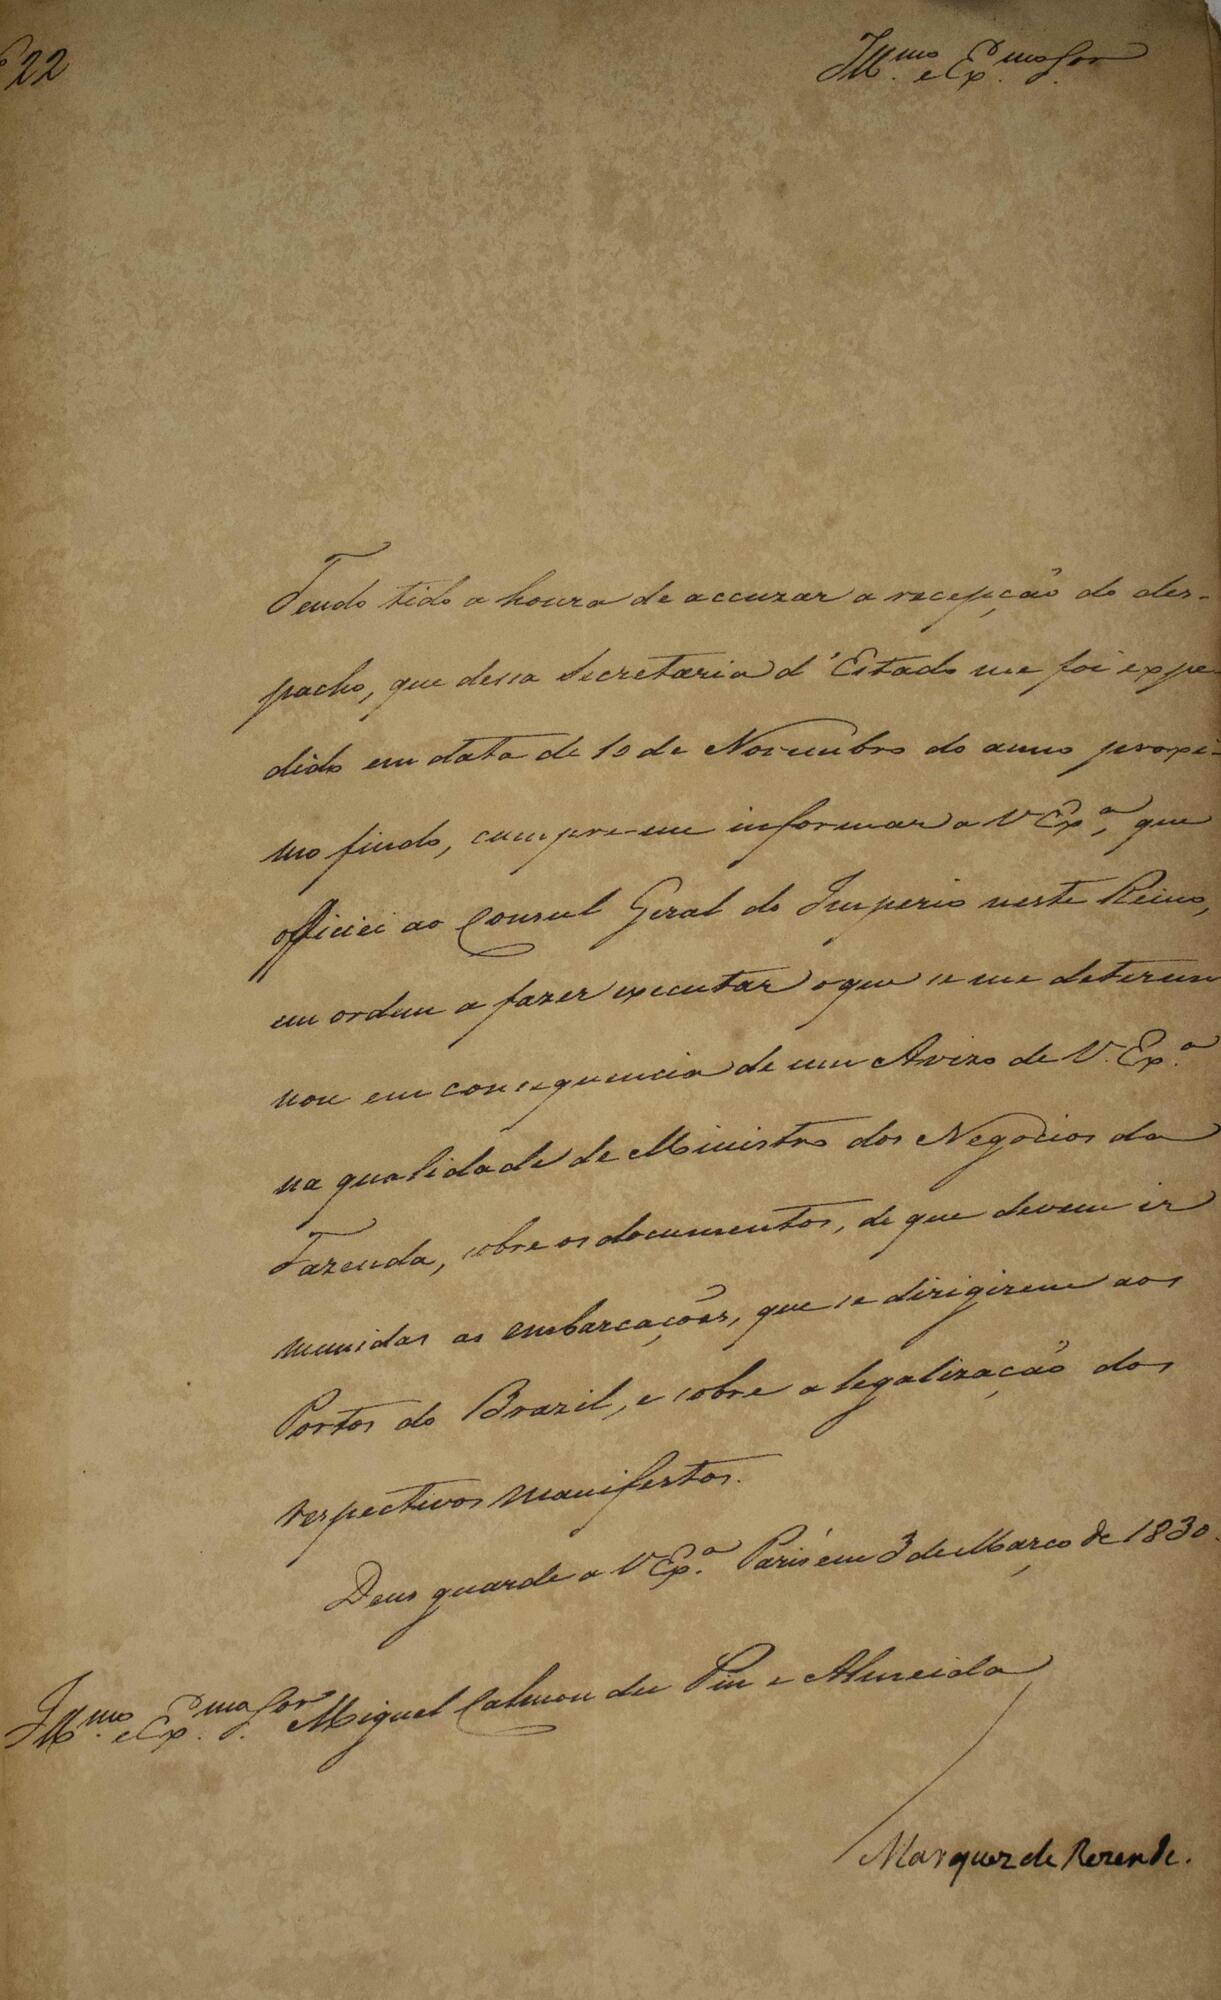 22
Ill.mo e Ex.mo Sor
Tendo tido a honra de accuzar a recepção do des-
pacho, que dessa Secretaria d'Estado me foi expe-
dido em data de 10 de Novembro do anno proxi-
mo findo, cumpre-me informar a V Ex.a, que
officiei ao Consul Geral do Imperio neste Reino,
em ordem a fazer executar o que se me determi
nou em consequencia de um Avizo de V. Ex.a
na qualidade de Ministro dos Negocios da
Fazenda, sobre os documentos, de que devem ir
munidas as embarcações, que se dirigirem aos
Portos do Brazil, e sobre a legalização dos
respectivos manifestos.
Deus guarde a V Ex.a Paris em 3 de Março de 1830.
Ill.mo e Ex.mo Sor Miguel Calmon du Pin e Almeida
Marquez de Rezende.